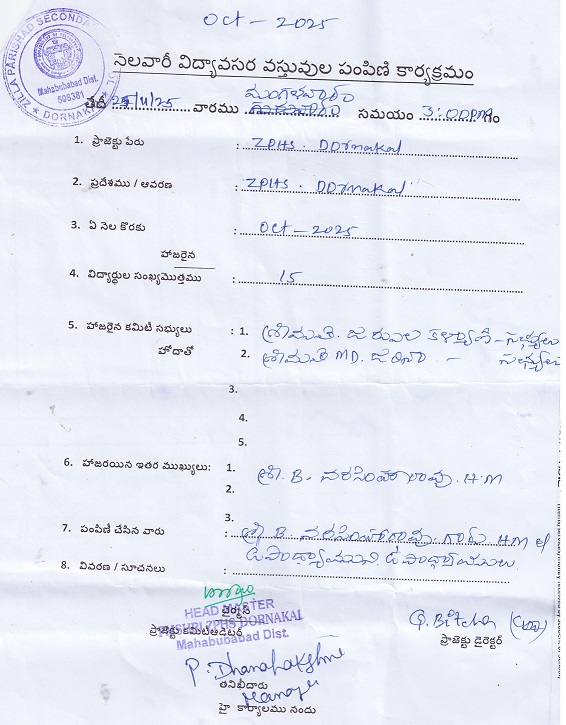 OCT - 2025
ZILLA PARISHAD SECONDA
Mahabubabad Dist.
506381
* DORNAKAL
నెలవారీ విద్యావసర వస్తువుల పంపిణి కార్యక్రమం
మంగళవారం
తేదీ 25/11/25 వారము సమయం 3:00PM గం
1. ప్రాజెక్టు పేరు : ZPHS. DORNAKAL
2. ప్రదేశము / ఆవరణ : ZPHS. DORNAKAL
3. ఏ నెల కొరకు : Oct - 2025
హాజరైన
4. విద్యార్ధుల సంఖ్యమొత్తము : 15
5. హాజరైన కమిటీ సభ్యులు : 1. శ్రీమతి. కళ్యాణి - సభ్యులు
హోదాతో 2. శ్రీమతి MD. - సభ్యులు
3.
4.
5.
6. హాజరయిన ఇతర ముఖ్యులు: 1. శ్రీ. B. నరసింహారావు. H.M
2.
3.
7. పంపిణీ చేసిన వారు : శ్రీ B. నరసింహారావు. గారు H.M
ఉపాధ్యాయులు.
8. వివరణ / సూచనలు :
చైర్మన్
HEAD MASTER
ZPHS DORNAKAL
Mahabubabad Dist.
ప్రాజెక్టు కమిటీఆడిటర్
ప్రాజెక్టు డైరెక్టర్
P. Dhanalakshmi
తనిఖీదారు
Manager
హై కార్యాలము నందు